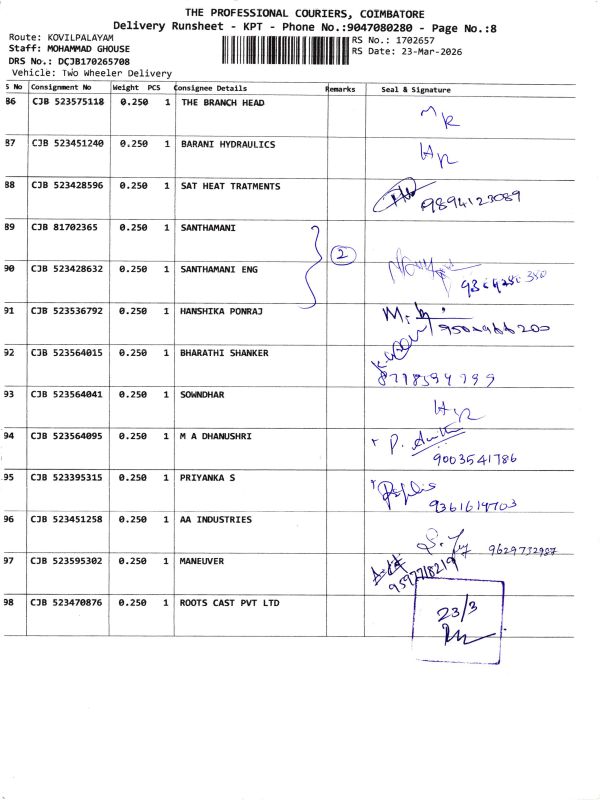 THE PROFESSIONAL COURIERS, COIMBATORE
Delivery Runsheet - KPT - Phone No.:9047080280 - Page No.:8
Route: KOVILPALAYAM
RS No.: 1702657
Staff: MOHAMMAD GHOUSE
RS Date: 23-Mar-2026
DRS No.: DCJB170265708
Vehicle: Two Wheeler Delivery
S No Consignment No Weight PCS Consignee Details Remarks Seal & Signature
86 CJB 523575118 0.250 1 THE BRANCH HEAD
87 CJB 523451240 0.250 1 BARANI HYDRAULICS
88 CJB 523428596 0.250 1 SAT HEAT TRATMENTS 9894123089
89 CJB 81702365 0.250 1 SANTHAMANI
2
90 CJB 523428632 0.250 1 SANTHAMANI ENG
91 CJB 523536792 0.250 1 HANSHIKA PONRAJ
92 CJB 523564015 0.250 1 BHARATHI SHANKER
93 CJB 523564041 0.250 1 SOWNDHAR
94 CJB 523564095 0.250 1 M A DHANUSHRI
9003541786
95 CJB 523395315 0.250 1 PRIYANKA S
96 CJB 523451258 0.250 1 AA INDUSTRIES
9629732987
97 CJB 523595302 0.250 1 MANEUVER
9597718219
98 CJB 523470876 0.250 1 ROOTS CAST PVT LTD
23/3